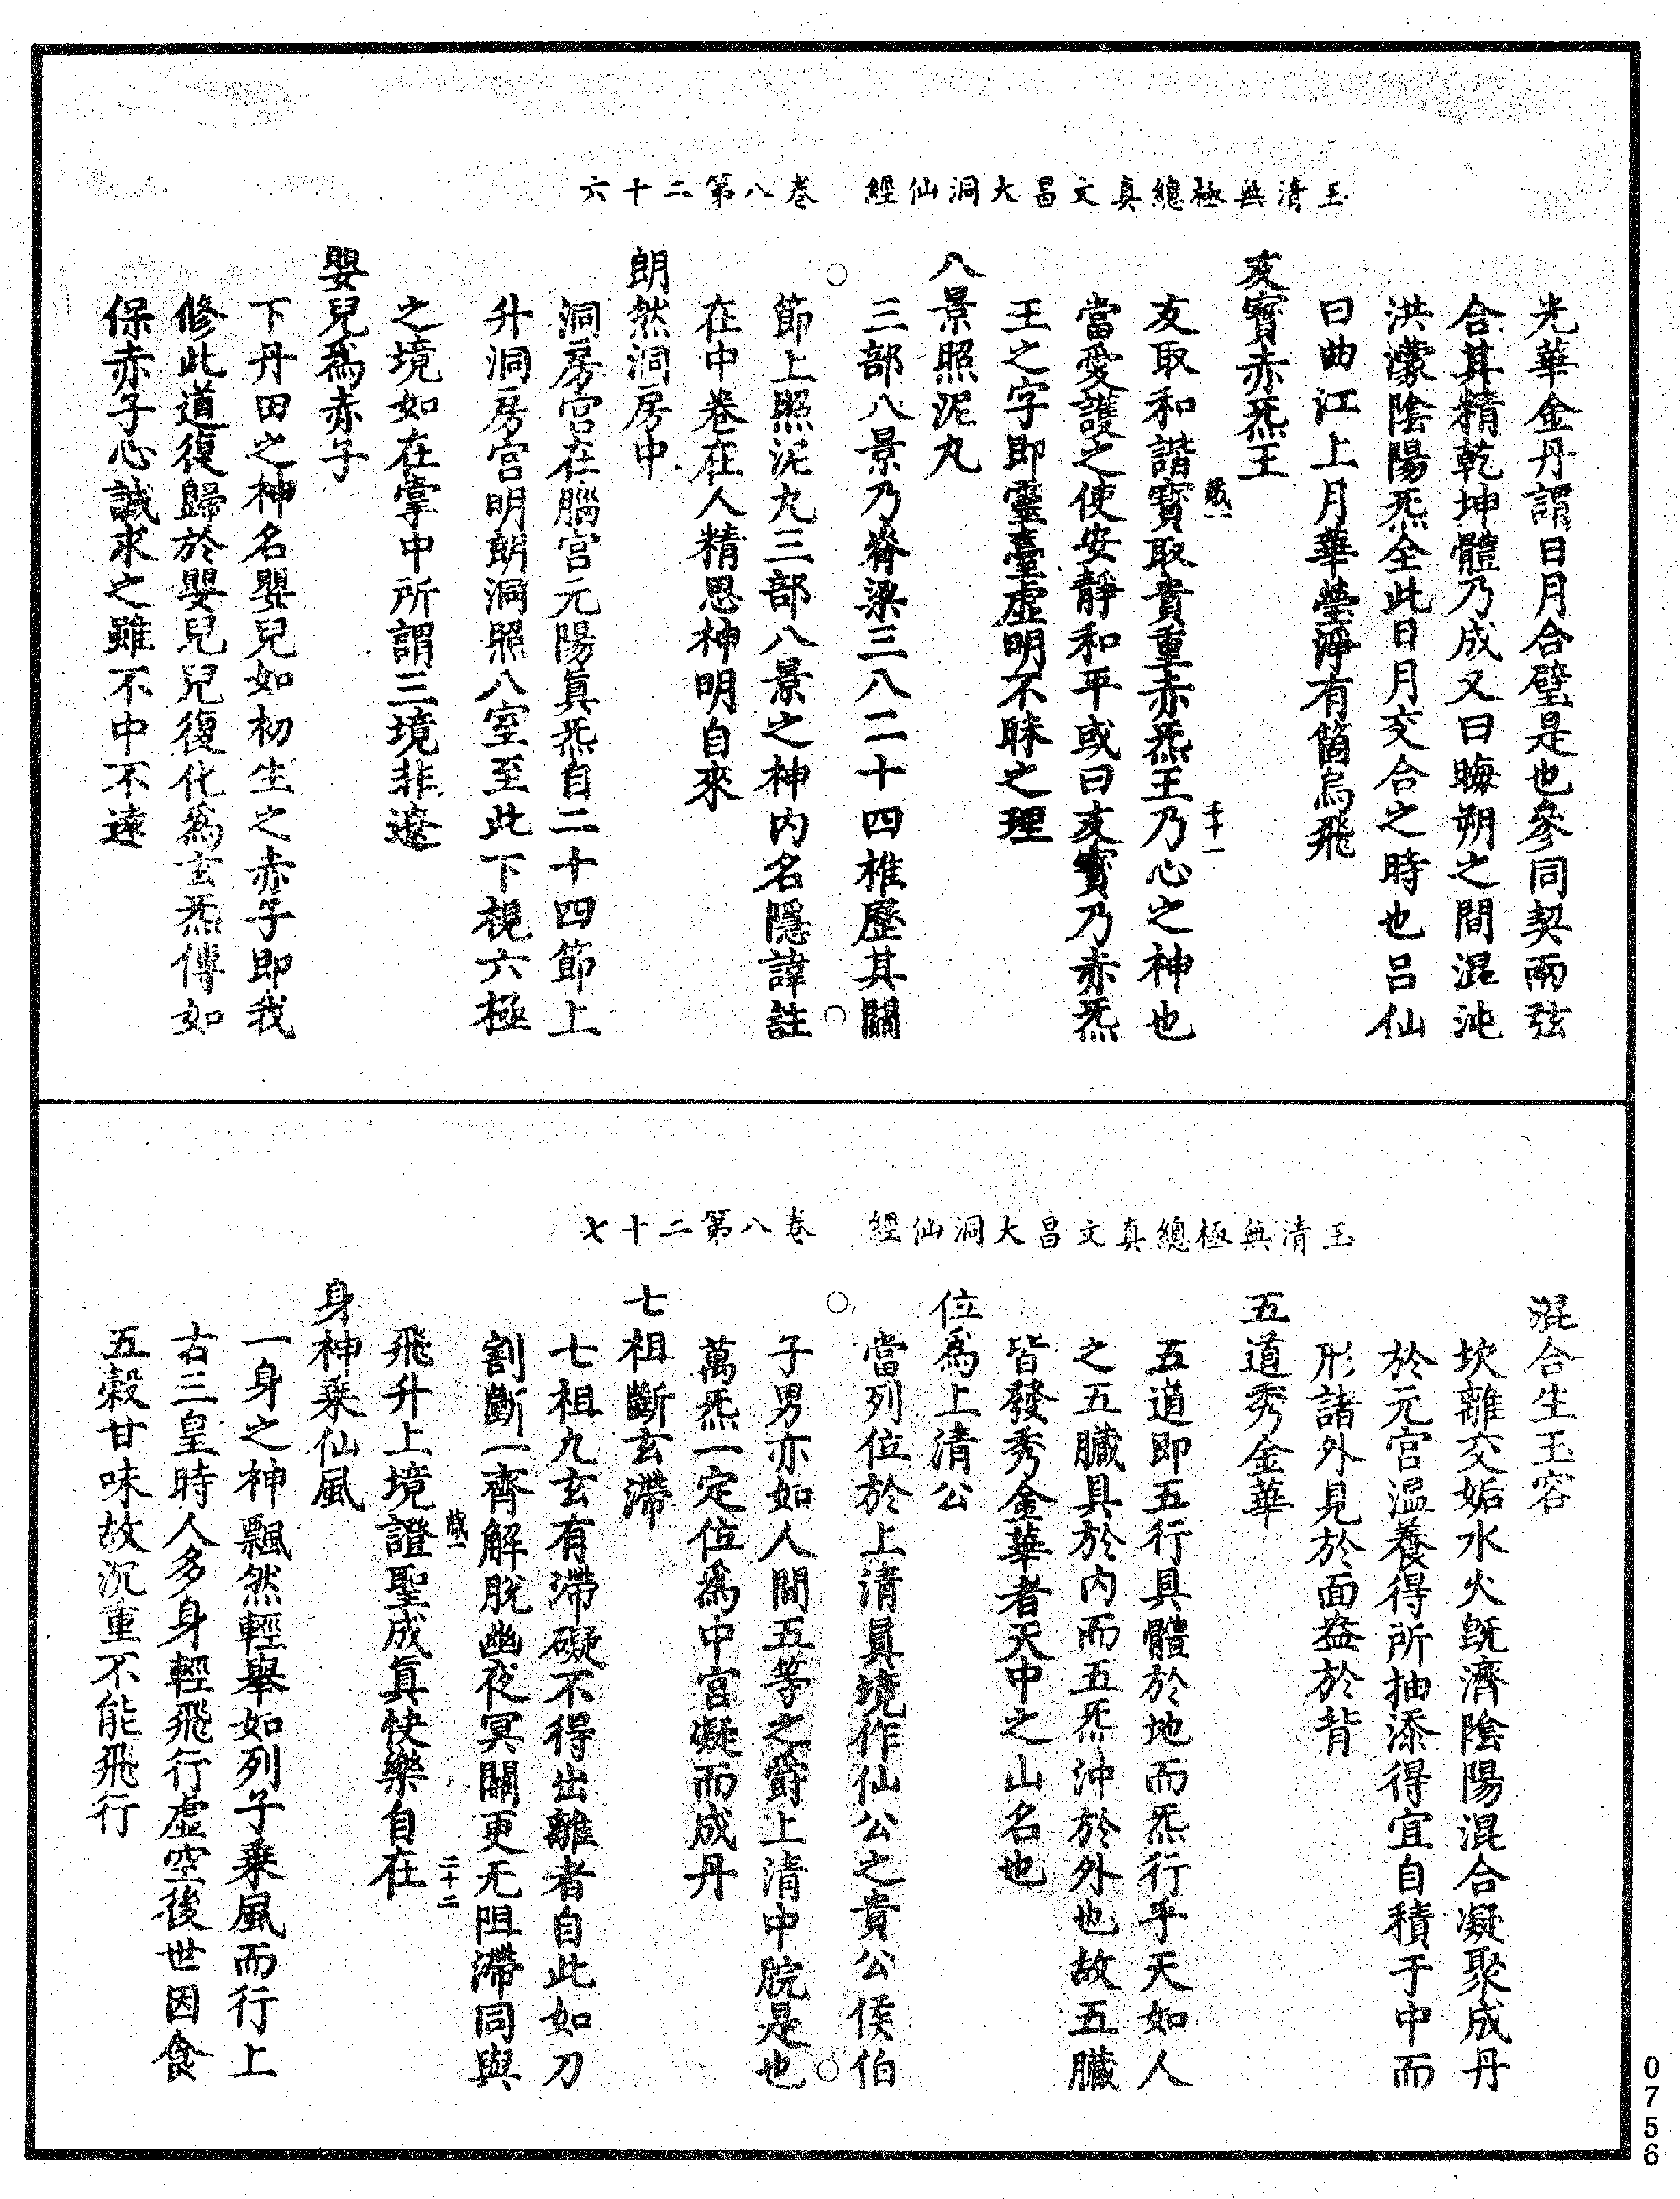 玉清無極總真文昌大洞仙經　卷八第二十六
光華金丹謂日月合璧是也參同契兩弦
合其精乾坤體乃成又曰晦朔之間混沌
洪濛陰陽炁全此日月交合之時也呂仙
曰曲江上月華瑩淨有箇烏飛
友寶赤炁王
友取和諧寶取貴重赤炁王乃心之神也
當愛護之使安靜和平或曰友寶乃赤炁
王之字即靈臺虛明不昧之理
八景照泥丸
三部八景乃脊梁三八二十四椎歷其關
節上照泥丸三部八景之神內名隱諱註
在中卷在人精思神明自來
朗然洞房中
洞房宮在腦宮元陽眞炁自二十四節上
升洞房宮明朗洞照八室至此下視六極
之境如在掌中所謂三境非遼
嬰兒爲赤子
下丹田之神名嬰兒如初生之赤子即我
修此道復歸於嬰兒兒復化為玄炁傳如
保赤子心誠求之雖不中不遠
玉清無極總真文昌大洞仙經　卷八第二十七
混合生玉容
坎離交姤水火既濟陰陽混合凝聚成丹
於元宮溫養得所抽添得宜自積于中而
形諸外見於面盎於背
五道秀金華
五道即五行具體於地而炁行乎天如人
之五臟具於內而五炁沖於外也故五臟
皆發秀金華者天中之山名也
位為上清公
當列位於上清眞境作仙公之貴公侯伯
子男亦如人間五等之爵上清中脘是也
萬炁一定位為中宮凝而成丹
七祖斷玄滯
七祖九玄有滯礙不得出離者自此如刀
割斷一齊解脫幽夜冥關更无阻滯同與
飛升上境證聖成眞快樂自在
身神乘仙風
一身之神飄然輕舉如列子乘風而行上
古三皇時人多身輕飛行虛空後世因食
五穀甘味故沉重不能飛行
0756